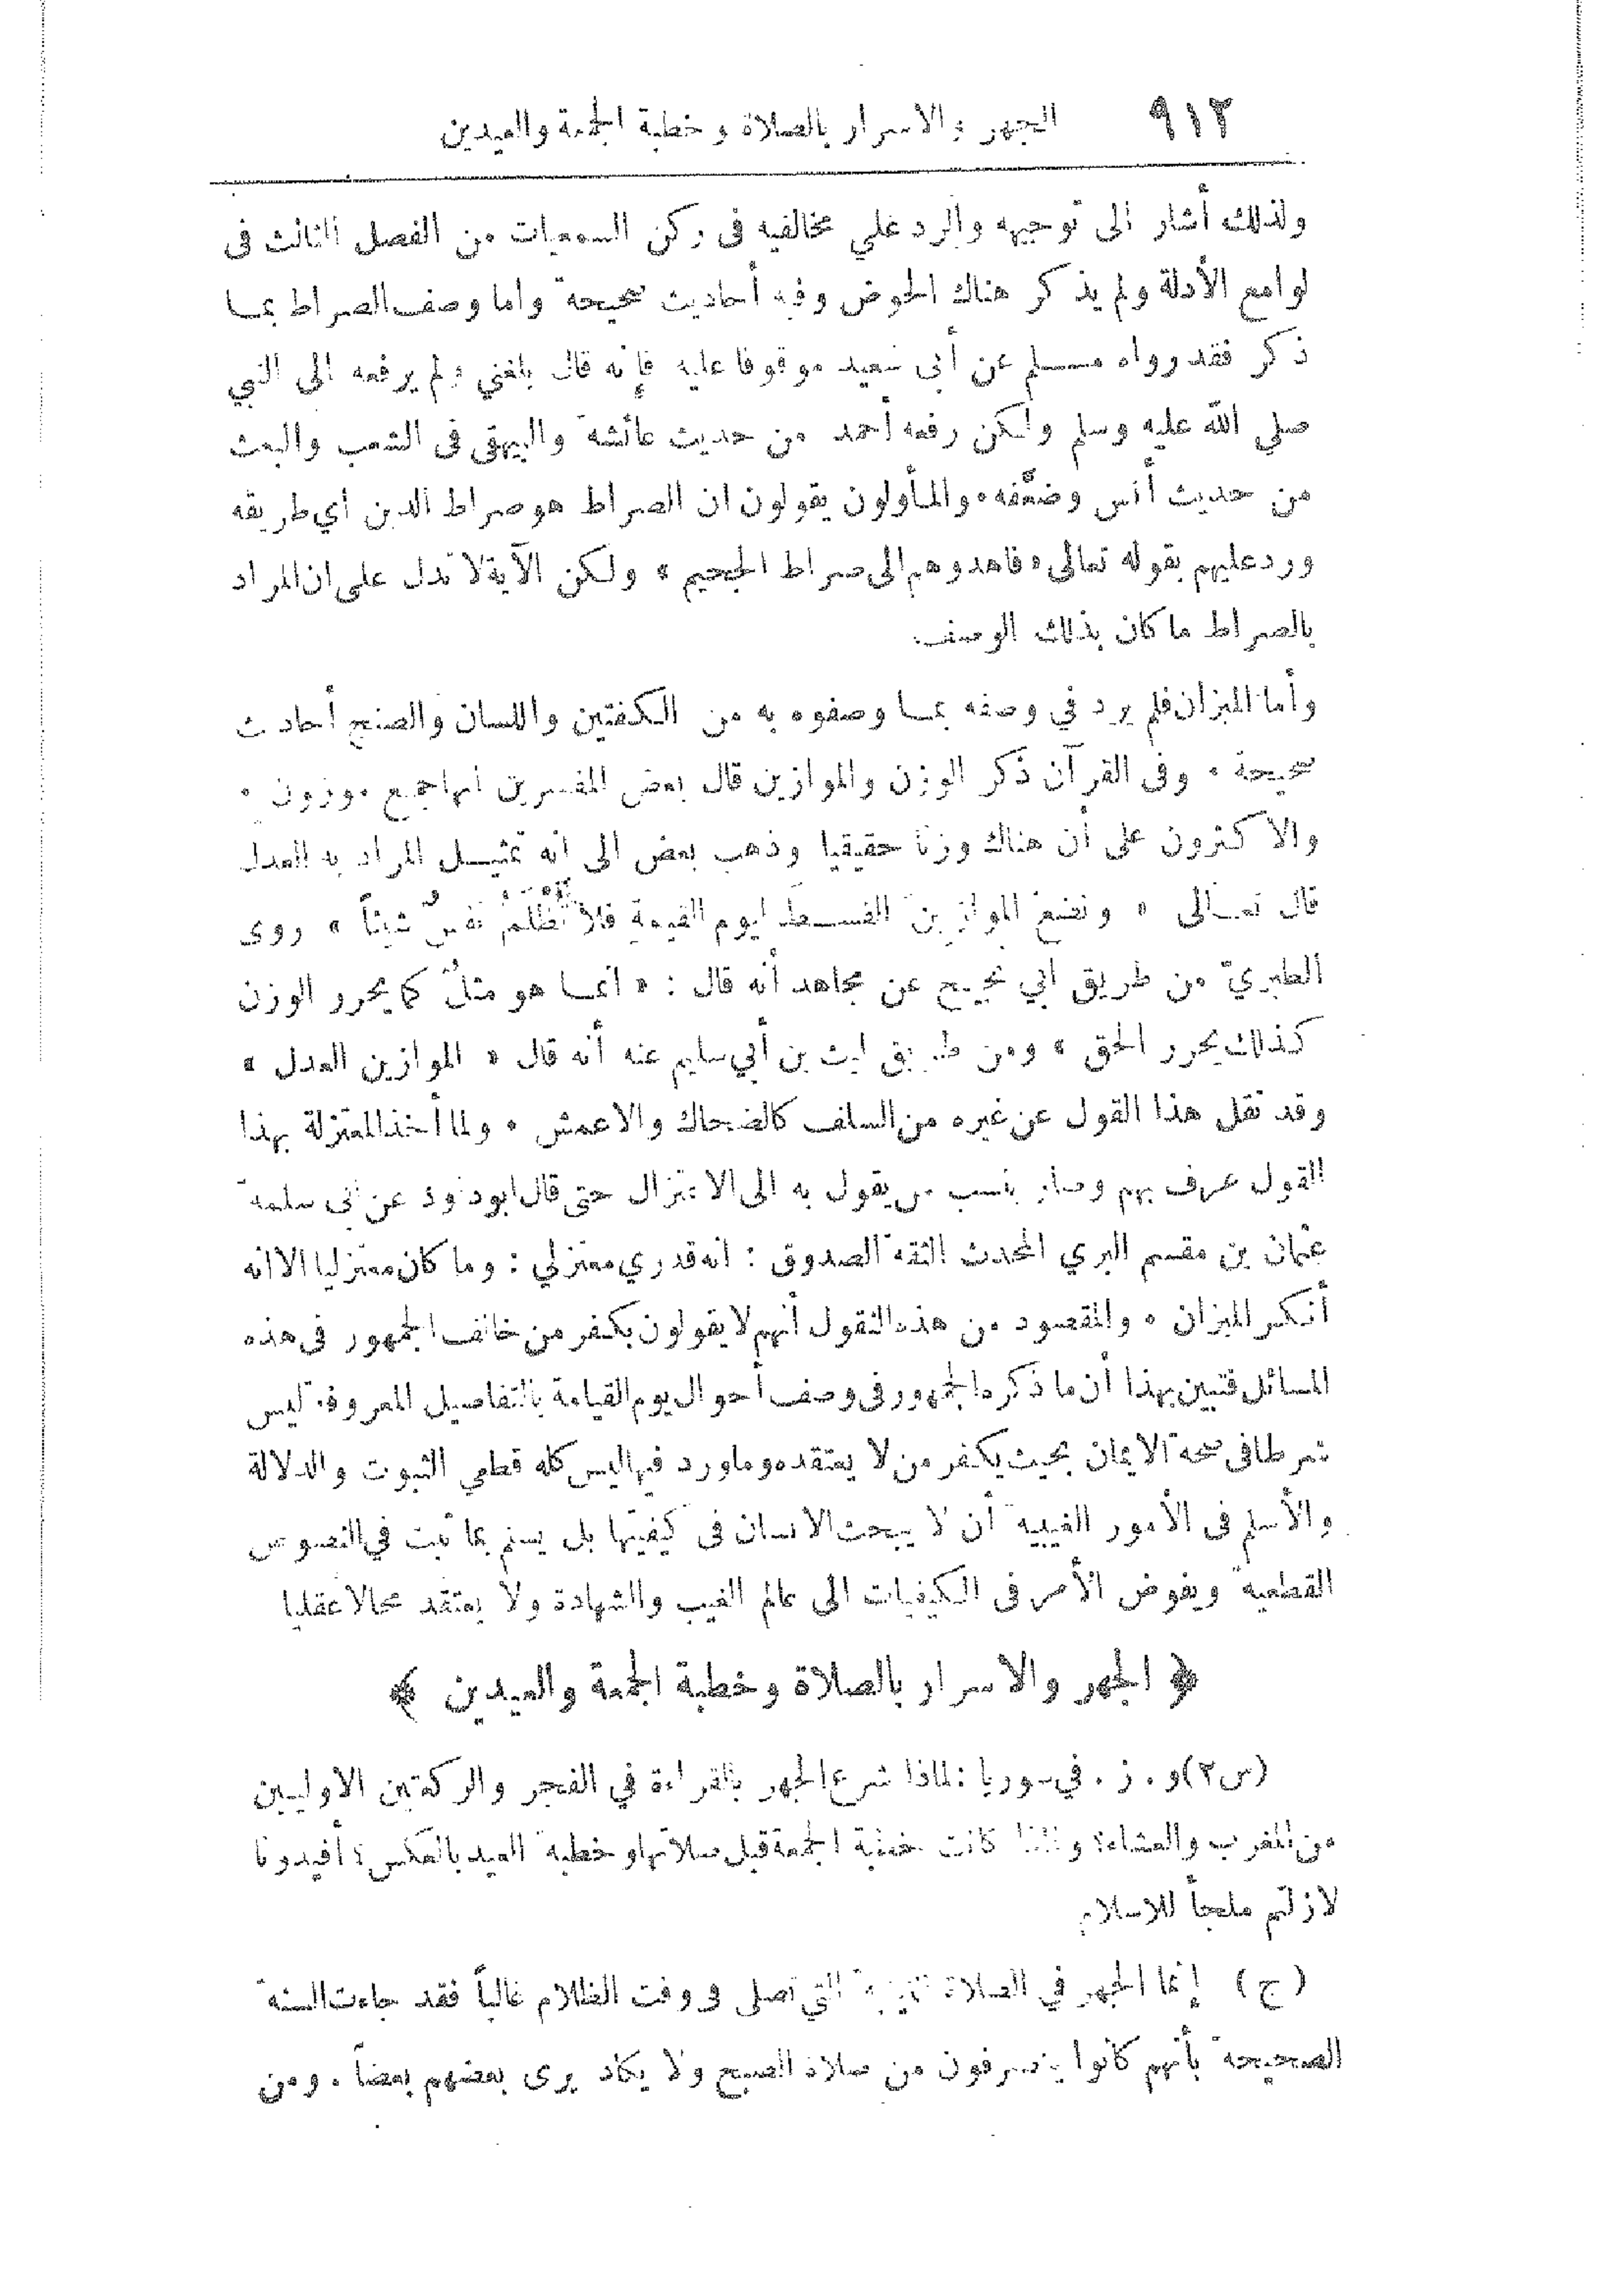 ٩١٢ الجهر والاسرار بالصلاة وخطبة الجمعة والعيدين
ولذلك أشار الى توجيهه والرد علي مخالفيه فى ركن السمعيات من الفصل الثالث فى
لوامع الأدلة ولم يذكر هناك الحوض وفيه أحاديث صحيحة واما وصف الصراط بما
ذكر فقد رواه مسلم عن أبى سعيد موقوفا عليه فإنه قال بلغني ولم يرفعه الى النبي
صلي الله عليه وسلم ولكن رفعه أحمد من حديث عائشة والبيهقى فى الشعب والبعث
من حديث أنس وضعَّفه. والمأولون يقولون ان الصراط هو صراط الدين أي طريقه
ورد عليهم بقوله تعالى « فاهدوهم الى صراط الجحيم » ولكن الآية لا تدل على ان المراد
بالصراط ما كان بذلك الوصف.
وأما الميزان فلم يرد في وصفه بما وصفوه به من الكفتين واللسان والصنج أحاديث
صحيحة . وفى القرآن ذكر الوزن والموازين قال بعض المفسرين انها جمع موزون .
والاكثرون على أن هناك وزنا حقيقيا وذهب بعض الى انه تمثيل المراد به العدل
قال تعالى « ونضعُ الموازين القسط ليوم القيمةِ فلا تُظْلَمُ نفسٌ شيئاً » روى
الطبريّ من طريق ابي نجيح عن مجاهد أنه قال : « انما هو مثلٌ كما يحرر الوزن
كذلك يحرر الحق » ومن طريق ليث بن أبي سليم عنه أنه قال « الموازين العدل »
وقد نقل هذا القول عن غيره من السلف كالضحاك والاعمش . ولما أخذ المعتزلة بهذا
القول عرف بهم وصار ينسب من يقول به الى الاعتزال حتى قال ابو داود عن أبى سلمة
عثمان بن مقسم البري المحدث الثقة الصدوق : انه قدري معتزلي : وما كان معتزليا الا انه
أنكر الميزان . والمقصود من هذه النقول أنهم لا يقولون بكفر من خالف الجمهور فى هذه
المسائل فتبين بهذا أن ما ذكره الجمهور فى وصف أحوال يوم القيامة بالتفاصيل المعروفة ليس
شرطا فى صحة الايمان بحيث يكفر من لا يعتقده وما ورد فيها ليس كله قطعي الثبوت والدلالة
والأسلم فى الأمور الغيبية أن لا يبحث الانسان فى كيفيتها بل يسلم بما ثبت في النصوص
القطعية ويفوض الأمر فى الكيفيات الى عالم الغيب والشهادة ولا يعتقد محالا عقليا
﴿ الجهر والاسرار بالصلاة وخطبة الجمعة والعيدين ﴾
(س٢) و . ز . في سوريا : لماذا شرع الجهر بالقراءة في الفجر والركعتين الاوليين
من المغرب والعشاء؟ ولماذا كانت خطبة الجمعة قبل صلاتها وخطبة العيد بالعكس؟ أفيدونا
لا زلتم ملجأ للاسلام
(ج) إنما الجهر في الصلاة التي تصلى فى وقت الظلام غالباً فقد جاءت السنة
الصحيحة بأنهم كانوا ينصرفون من صلاة الصبح ولا يكاد يرى بعضهم بعضاً . ومن